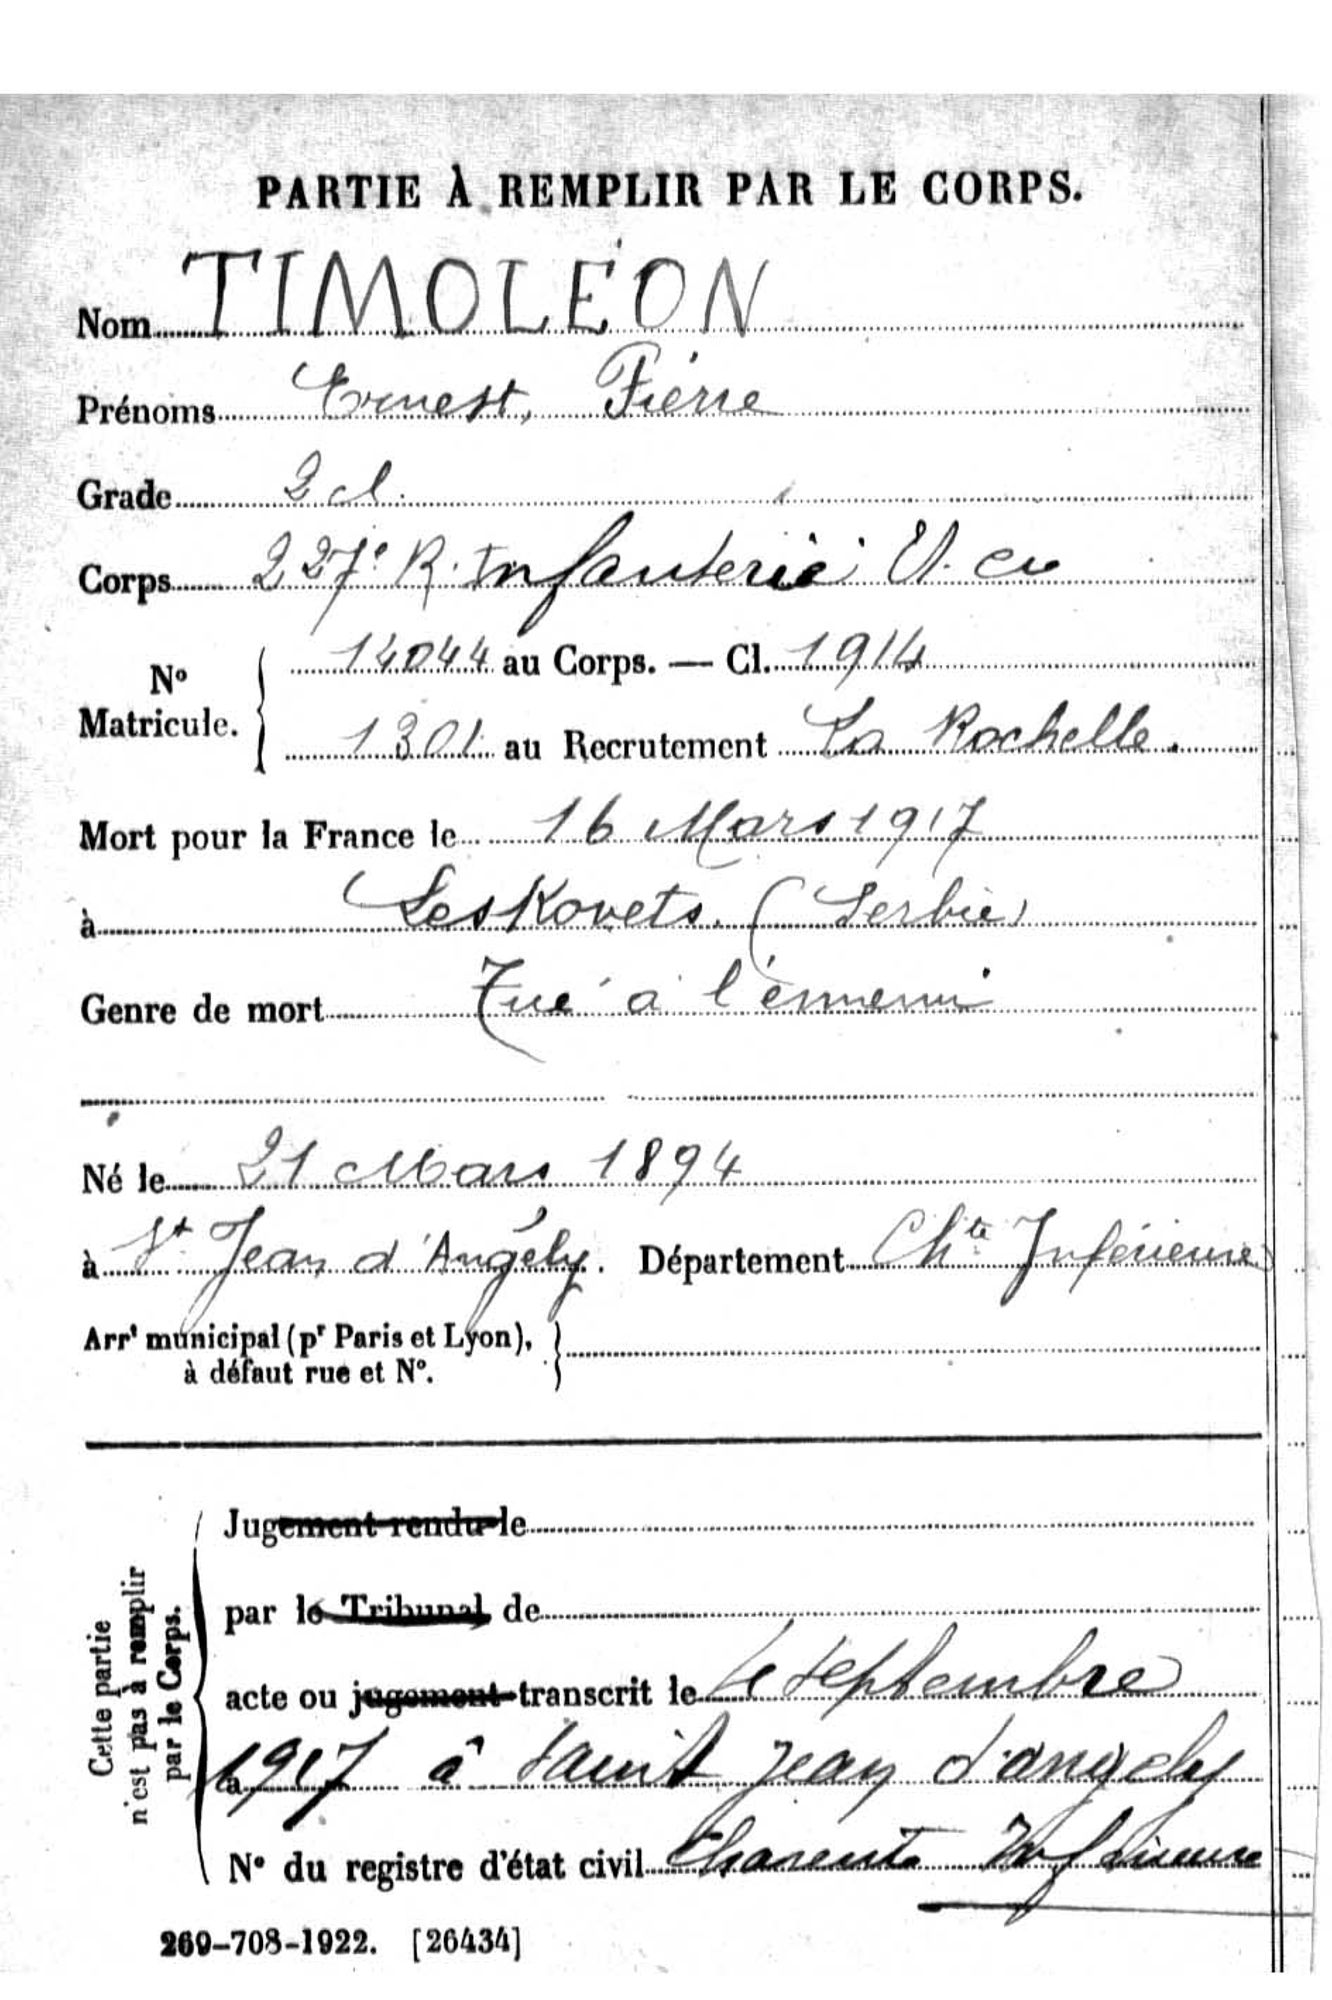 PARTIE À REMPLIR PAR LE CORPS.
Nom TIMOLÉON
Prénoms Ernest, Pierre
Grade 2 cl.
Corps 227e R. Infanterie
14044 au Corps. — Cl. 1914
No
Matricule.
1301 au Recrutement La Rochelle.
Mort pour la France le 16 Mars 1917
à Leskovets. (Serbie)
Genre de mort Tué à l'ennemi
Né le 21 Mars 1894
à St Jean d'Angély. Département Chte Inférieure
Arrt municipal (pr Paris et Lyon),
à défaut rue et No.
Cette partie
n'est pas à remplir
par le Corps.
Jugement rendu le
par le Tribunal de
acte ou jugement transcrit le 4 septembre
a 1917 à saint jean d'angely
No du registre d'état civil Charente Inférieure
269-708-1922. [26434]